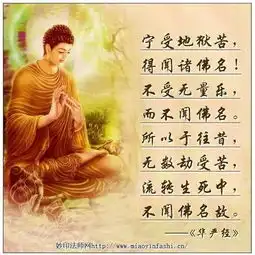 宁受地狱苦，
得闻诸佛名！
不受无量乐，
而不闻佛名。
所以于往昔，
无数劫受苦，
流转生死中，
不闻佛名故。
——《华严经》
妙印法师网http://www.miaoyinfashi.cn/